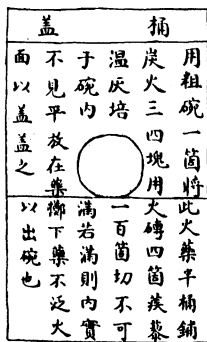 桶蓋
用粗碗一箇將
炭火三四塊用
温灰培
子碗内
不見平放在藥
面以蓋蓋之
此火藥半桶鋪
火磚四箇蒺藜
一百箇切不可
滿若滿則内實
擲下藥不泛火
以出碗也